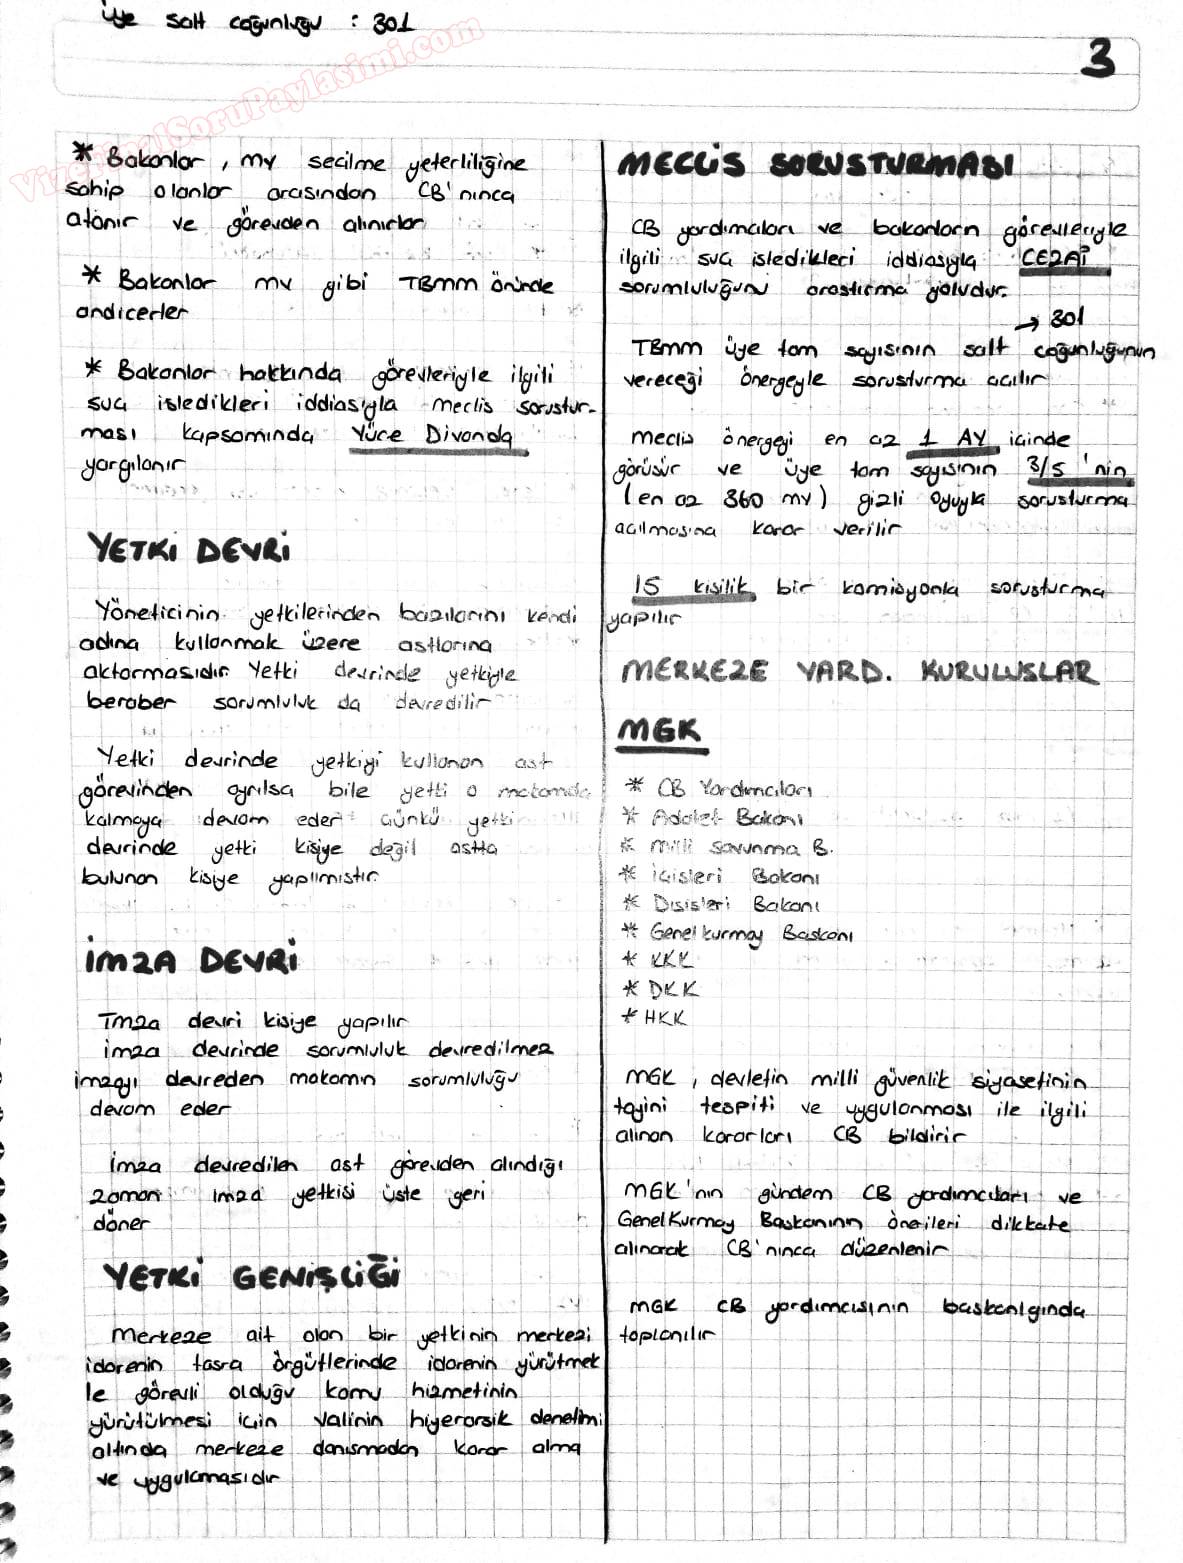 üye salt çoğunluğu : 301
VizeFinalSoruPaylasimi.com
3
* Bakanlar, mv secilme yeterliliğine
sahip olanlar arasından CB'nınca
atanır ve görevden alınırlar
* Bakanlar mv gibi TBMM önünde
andicerler
* Bakanlar hakkında görevleriyle ilgili
suç işledikleri iddiasıyla meclis sorustur-
ması kapsamında Yüce Divanda
yargılanır
YETKİ DEVRİ
Yöneticinin yetkilerinden bazılarını kendi
adına kullanmak üzere astlarına
aktarmasıdır. Yetki devrinde yetkiyle
beraber sorumluluk da devredilir
Yetki devrinde yetkiyi kullanan ast
görevinden ayrılsa bile yetki o makamda
kalmaya devam eder çünkü yetki
devrinde yetki kişiye değil astta
bulunan kisiye yapılmıstır
İMZA DEVRİ
İmza devri kisiye yapılır
imza devrinde sorumluluk devredilmez
imzayı devreden makamın sorumluluğu
devam eder
imza devredilen ast görevden alındığı
zaman imza yetkisi üste geri
döner
YETKİ GENİŞLİĞİ
Merkeze ait olan bir yetkinin merkezi
idarenin tasra örgütlerinde idarenin yürütmek
le görevli olduğu kamu hizmetinin
yürütülmesi için valinin hiyerarsik denetimi
altında merkeze danısmadan karar alma
ve uygulamasıdır
MECLİS SORUSTURMASI
CB yardımcıları ve bakanların görevleriyle
ilgili suç isledikleri iddiasıyla CEZAİ
sorumluluğunu arastırma yoludur.
→ 301
TBMM üye tam sayısının salt çoğunluğunun
vereceği önergeyle sorusturma açılır
Meclis önergeyi en az 1 AY içinde
görüsür ve üye tam sayısının 3/5 'nin
(en az 360 mv) gizli oyuyla sorusturma
açılmasına karar verilir
15 kisilik bir komisyonla sorusturma
yapılır
MERKEZE YARD. KURULUSLAR
MGK
* CB Yardımcıları
* Adalet Bakanı
* Milli Savunma B.
* İçisleri Bakanı
* Dısisleri Bakanı
* Genel kurmay Baskanı
* KKK
* DKK
* HKK
MGK, devletin milli güvenlik siyasetinin
tayini tespiti ve uygulanması ile ilgili
alınan kararları CB bildirir
MGK'nın gündem CB yardımcıları ve
Genel Kurmay Baskanının önerileri dikkate
alınarak CB'nınca düzenlenir
MGK CB yardımcısının baskanlıgında
toplanılır